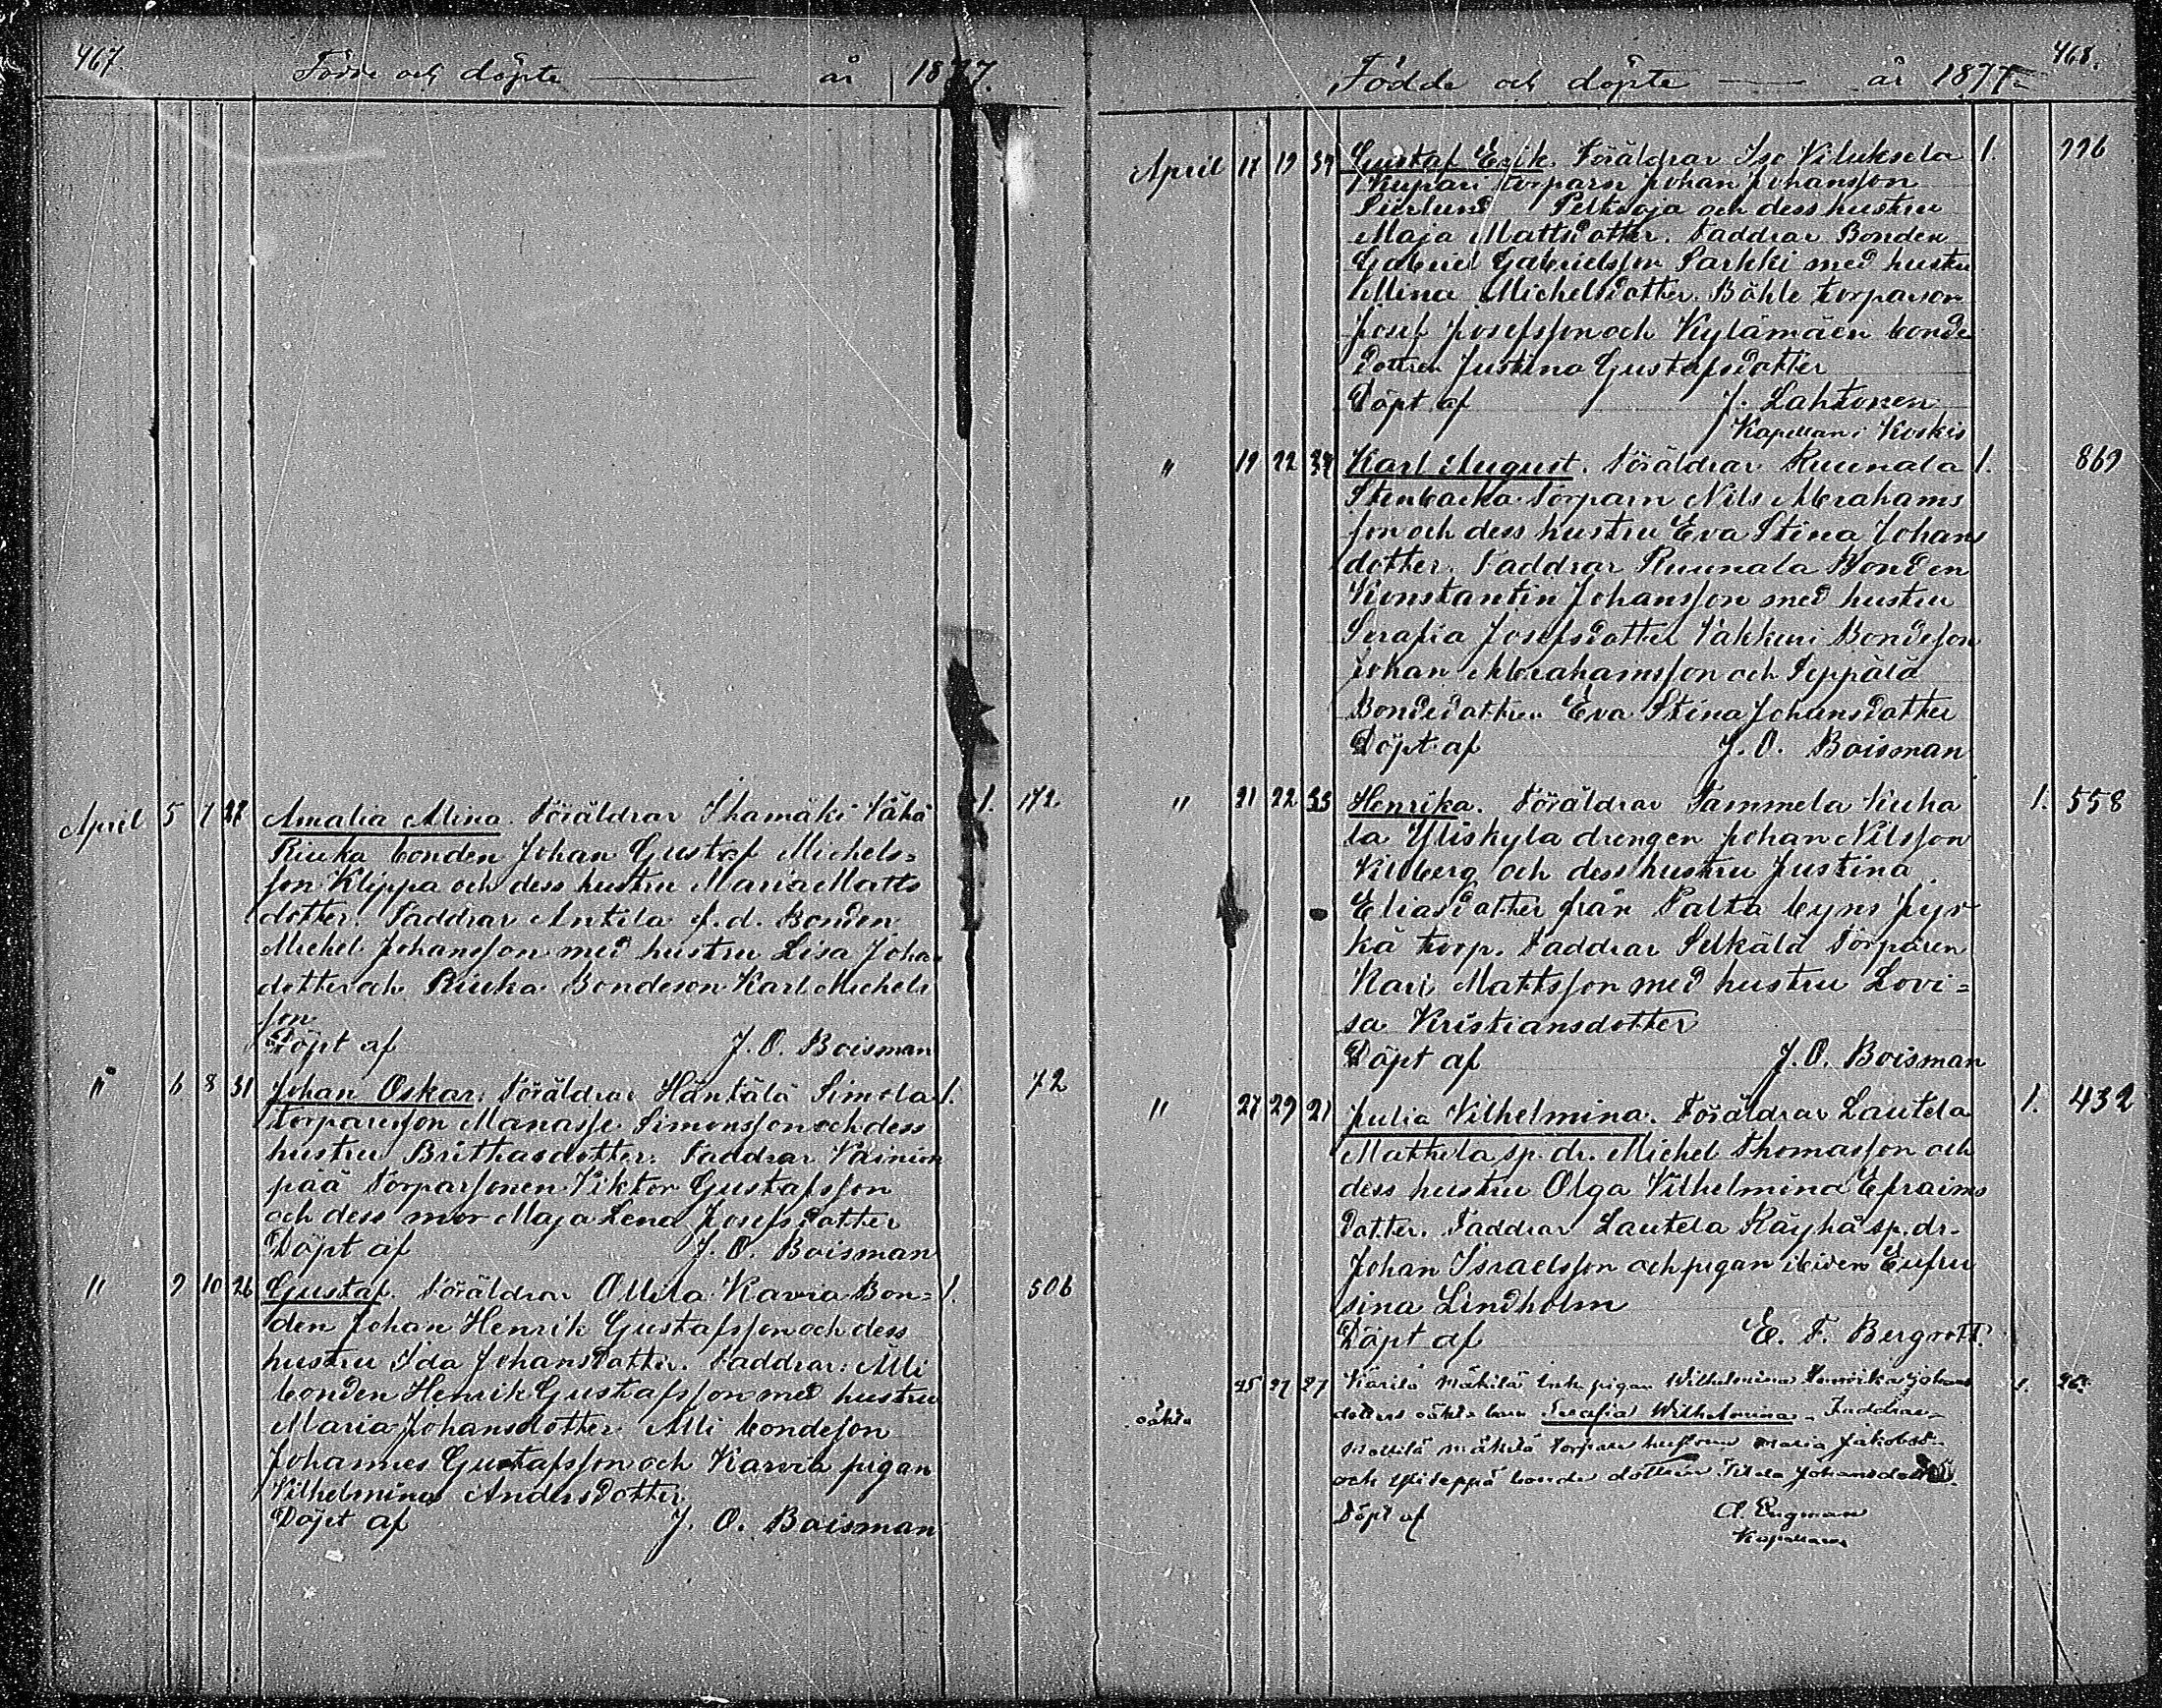 467.
Födde och döpte — år 1877.
April 5 7 27 Amalia Mina. Föräldrar Ihamäki Vähä 1. 172
Riuka bonden Johan Gustaf Michels=
son Klippa och dess hustru Maria Matts
dotter. Faddrar Anttila f.d. Bonden
Michel Johansson med hustru Lisa Joha
dotter och Riuka Bondeson Karl Michels
son
Döpt af J. O. Boisman
" 6 8 31 Johan Oskar. Föräldrar Häntälä Simola 1. 72
torparesson Manasse Simonsson och dess
hustru Brittasdotter. Faddrar Vainion
pää Torparsonen Viktor Gustafsson
och dess mor Maja Lena Josefsdotter
Döpt af J. O. Boisman
" 9 10 26 Gustaf. Föräldrar Ollila Karvia Bon= 1. 506
den Johan Henrik Gustafsson och dess
hustru Ida Johansdotter. Faddrar: Alli
bonden Henrik Gustafsson med hustru
Maria Johansdotter Alli bondeson
Johannes Gustafsson och Karvia pigan
Vilhelmina Andersdotter
Döpt af J. O. Boisman
468.
Födde och döpte — år 1877
April 17 19 37 Gustaf Erik. Föräldrar Iso Viluksela 1. 996
Kupari torparn Johan Johansson
Peltooja och dess hustru
Maja Mattsdotter. Faddrar Bonden
Gabriel Gabrielsson Parkki med hustru
Mina Michelsdotter. Böhle torparson
Josef Josefsson och Kylämäen bonde
dottren Justina Gustafsdotter
Döpt af J. Lahtonen
Kapellan i Koskis
" 19 22 37 Karl August. Föräldrar Ruunala 1. 869
Stenbacka Torparn Nils Abrahams
son och dess hustru Eva Stina Johans
dotter. Faddrar Ruunala Bonden
Konstantin Johansson med hustru
Serafia Josefsdotter Vahkuri Bondeson
Johan Abrahamsson och Seppälä
Bondedottren Eva Stina Johansdotter
Döpt af J. O. Boisman
" 21 22 33 Henrika. Föräldrar Tammela Kuha 1. 558
la Yliskylä drengen Johan Nilsson
Vildberg och dess hustru Justina
Eliasdotter från Palta byns Jys
kä torp. Faddrar Sukälä Torparen
Karl Mattsson med hustru Lovi=
sa Kristiansdotter
Döpt af J. O. Boisman
" 27 29 21 Julia Vilhelmina. Föräldrar Lautela 1. 432
Mattila sp. dr. Michel Thomasson och
dess hustru Olga Vilhelmina Efraims
dotter. Faddrar Lautela Räyhä sp. dr.
Johan Israelsson och pigan ibidem Eufro
sina Lindholm
Döpt af E. F. Bergrott.
oäkta 25 27 27 Karilä Mäkilä Inh. pigan Wilhelmina Henrika Johans 1. 26.
dotters oäkta barn Serafia Wilhelmina. Faddrar
Mollilä Mäkilä torpare hustrun Maria Jakobsd.
och bonde dottren Johansdotter.
Döpt af A. Engman
Kapellan